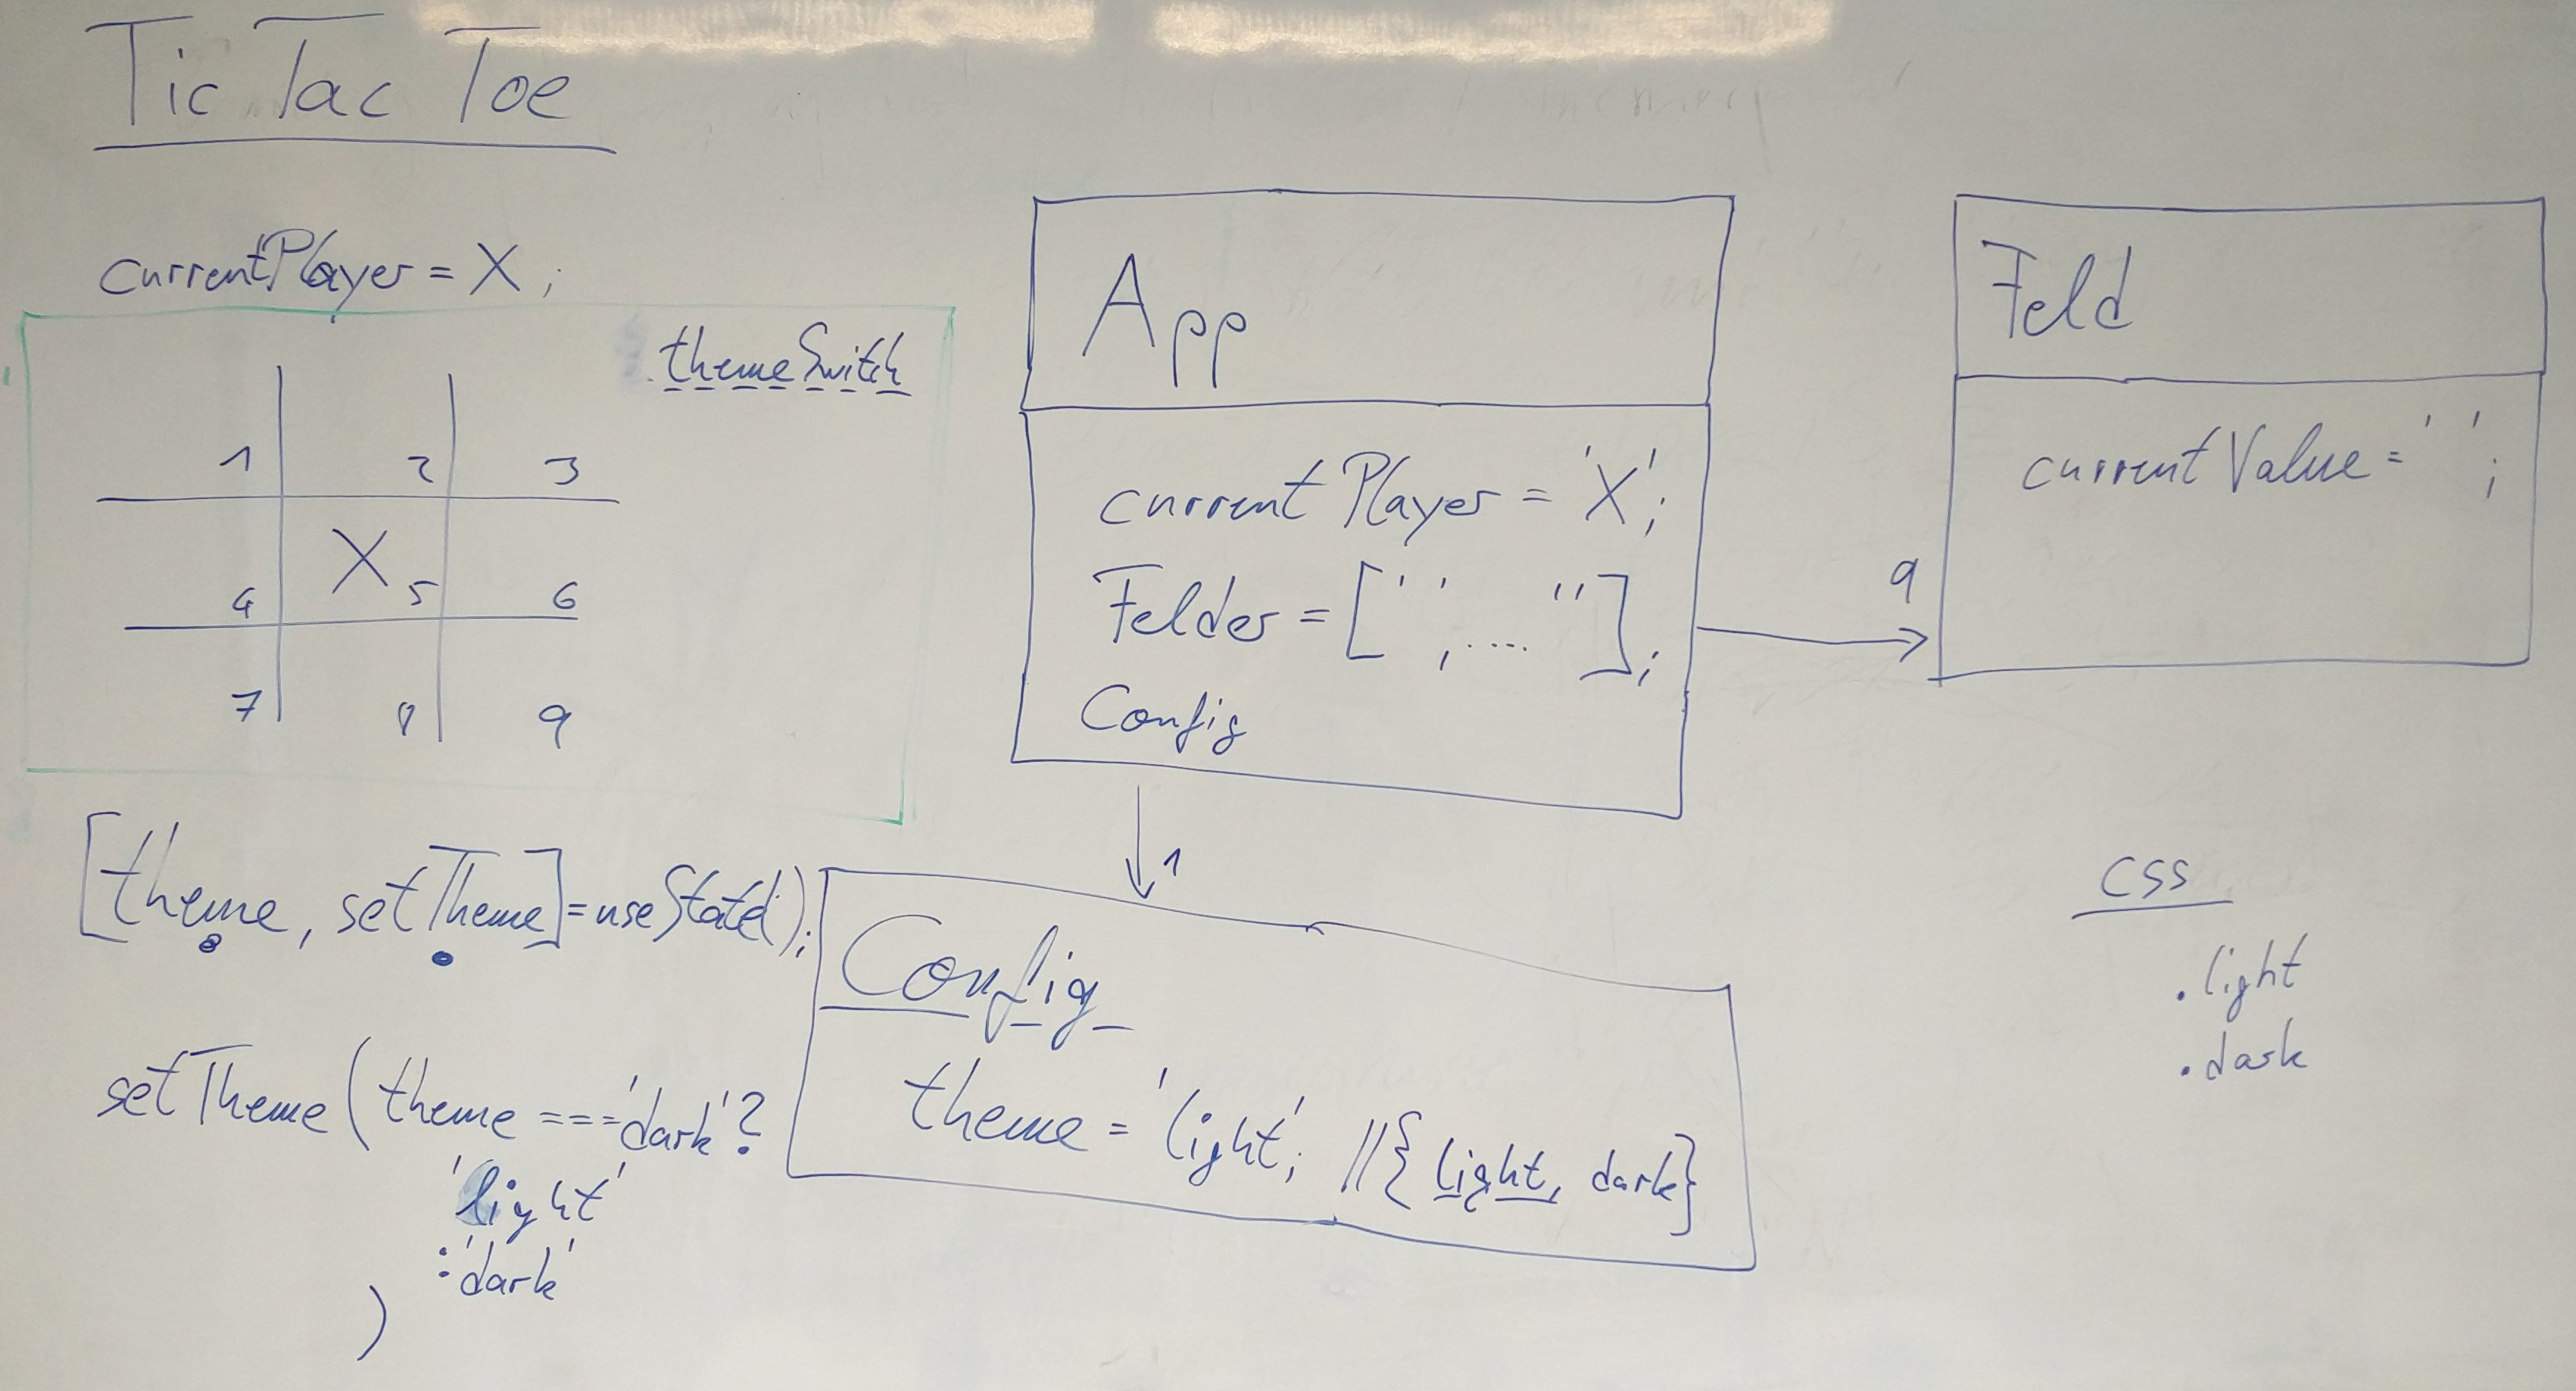 Tic Tac Toe
currentPlayer = X ;
themeSwitch
1 2 3
X
4 5 6
7 8 9
[theme, setTheme] = useState();
setTheme ( theme === 'dark' ?
'light'
: 'dark'
)
App
currentPlayer = 'X';
Felder = [' ', .... ''];
Config
9
1
Feld
currentValue = ' ';
Config
theme = 'light'; //{light, dark}
CSS
.light
.dark